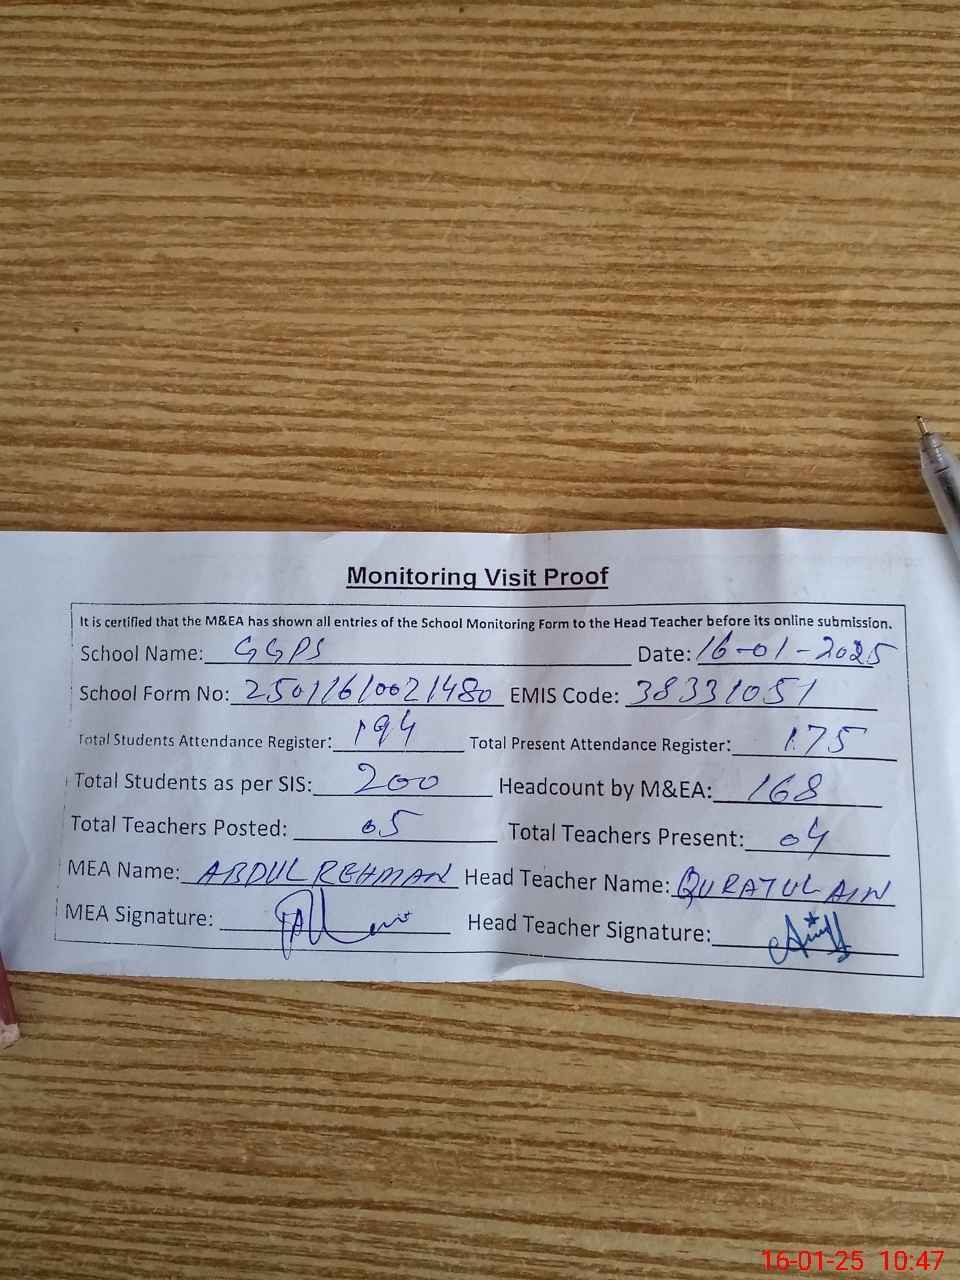 Monitoring Visit Proof
It is certified that the M&EA has shown all entries of the School Monitoring Form to the Head Teacher before its online submission.
School Name: GGPS Date: 16-01-2025
School Form No: 25011610021480 EMIS Code: 38331051
Total Students Attendance Register: 194 Total Present Attendance Register: 175
Total Students as per SIS: 200 Headcount by M&EA: 168
Total Teachers Posted: 05 Total Teachers Present: 04
MEA Name: ABDUL REHMAN Head Teacher Name: QURATUL AIN
MEA Signature: Head Teacher Signature:
16-01-25 10:47